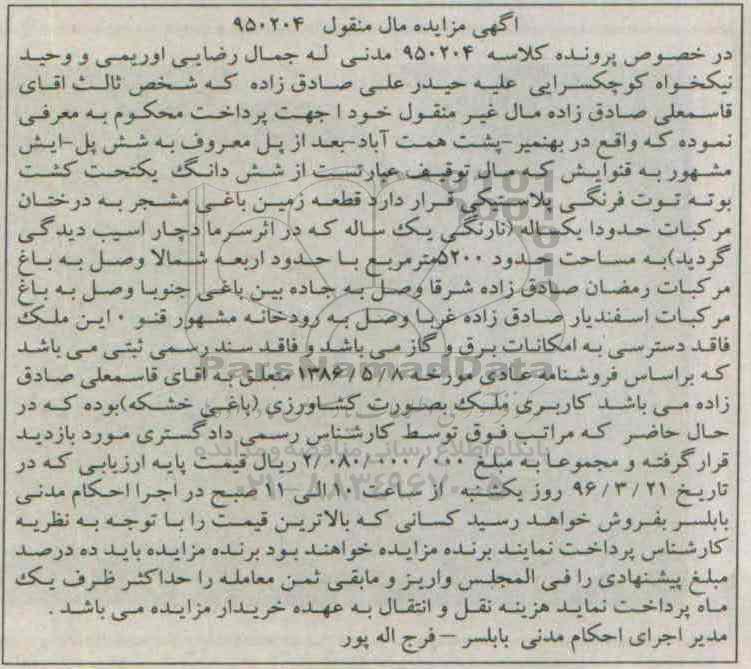 آگهی مزایده مال منقول ۹۵۰۲۰۴
در خصوص پرونده کلاسه ۹۵۰۲۰۴ مدنی له جمال رضایی اوریمی و وحید
نیکخواه کوچکسرایی علیه حیدر علی صادق زاده که شخص ثالث اقای
قاسمعلی صادق زاده مال غیر منقول خود ا جهت پرداخت محکوم به معرفی
نموده که واقع در بهنمیر-پشت همت آباد-بعد از پل معروف به شش پل-ایش
مشهور به قنوایش که مال توقیف عبارتست از شش دانگ یکتحت کشت
بوته توت فرنگی پلاستیکی قرار دارد قطعه زمین باغی مشجر به درختان
مرکبات حدودا یکساله (نارنگی یک ساله که در اثرسرما دچار اسیب دیدگی
گردید)به مساحت حدود ۵۲۰۰مترمربع با حدود اربعه شمالا وصل به باغ
مرکبات رمضان صادق زاده شرقا وصل به جاده بین باغی جنوبا وصل به باغ
مرکبات اسفندیار صادق زاده غربا وصل به رودخانه مشهور قنو ۰ این ملک
فاقد دسترسی به امکانات برق و گاز می باشد و فاقد سند رسمی ثبتی می باشد
که براساس فروشنامه عادی مورخه ۱۳۸۶/۵/۸ متعلق به اقای قاسمعلی صادق
زاده می باشد کاربری ملک بصورت کشاورزی (باغی خشکه)بوده که در
حال حاضر که مراتب فوق توسط کارشناس رسمی دادگستری مورد بازدید
قرار گرفته و مجموعا به مبلغ ۲/۰۸۰/۰۰۰/۰۰۰ ریال قیمت پایه ارزیابی که در
تاریخ ۹۶/۳/۲۱ روز یکشنبه از ساعت ۱۰ الی ۱۱ صبح در اجرا احکام مدنی
بابلسر بفروش خواهد رسید کسانی که بالاترین قیمت را با توجه به نظریه
کارشناس پرداخت نمایند برنده مزایده خواهند بود برنده مزایده باید ده درصد
مبلغ پیشنهادی را فی المجلس واریز و مابقی ثمن معامله را حداکثر ظرف یک
ماه پرداخت نماید هزینه نقل و انتقال به عهده خریدار مزایده می باشد .
مدیر اجرای احکام مدنی بابلسر – فرج اله پور
ParsNamadData
پایگاه اطلاع رسانی مناقصه و مزایده